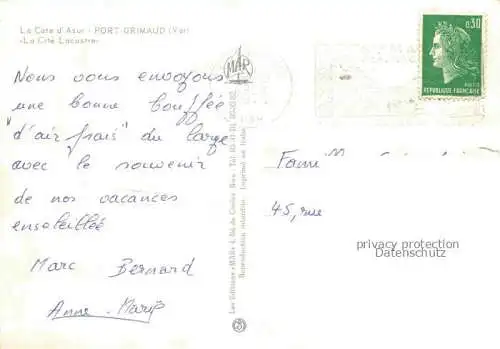 La Cote d'Azur - PORT-GRIMAUD (Var)
«La Cité Lacustre»
Nous vous envoyons
une bonne bouffée
"d'air frais" du large
avec le souvenir
de nos vacances
ensoleillée
Marc Bernard
Anne-Marie
MAR
Les Editions «MAR»
Reproduction interdite. Imprimé en Italie
0,30
REPUBLIQUE FRANÇAISE
45, rue
privacy protection
Datenschutz